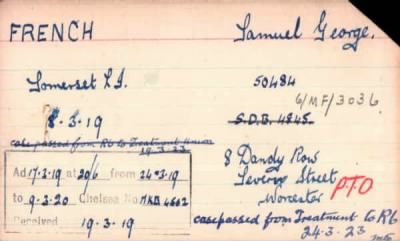 FRENCH Samuel George.
Somerset L.I. 50484
6/MF/3036
8-3-19 S.D.B. 4845.
casepassed from R6 to Treatment
19-3-23
8 Dandy Row
Severn Street PTO
Worcester
Ad 17-3-19 at 20/6 from 24-3-19
to 9-3-20 Chelsea No.
Received 19-3-19
casepassed from Treatment to R6
24-3-23